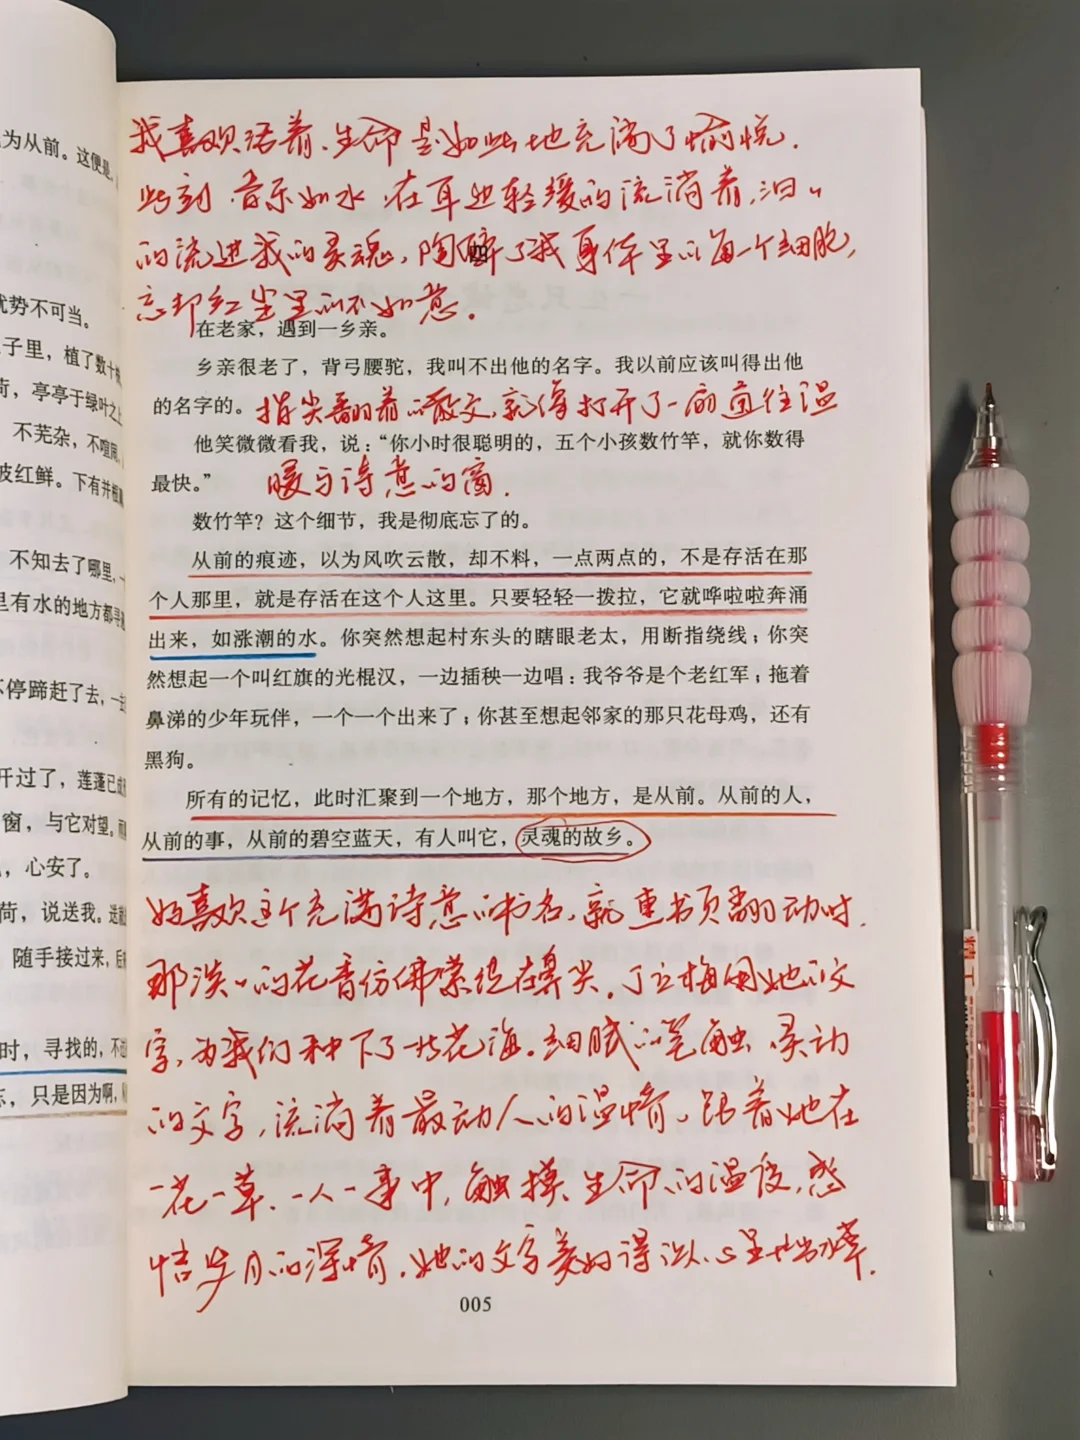 为从前。这便是,
优势不可当。
子里，植了数十
荷，亭亭于绿叶之上
不芜杂，不喧闹
波红鲜。下有并根藕
不知去了哪里，一
里有水的地方都寻遍
不停蹄赶了去，一去
开过了，莲蓬已成
窗，与它对望。
，心安了。
荷，说送我。送
随手接过来，后
时，寻找的，不
忘，只是因为啊，
我喜欢活着、生命是如此地充满了愉悦.
此刻.音乐如水.在耳边轻缓的流淌着,汩〃
的流进我的灵魂,陶醉了我身体里的每一个细胞,
四
忘却红尘里的不如意.
在老家，遇到一乡亲。
乡亲很老了，背弓腰驼，我叫不出他的名字。我以前应该叫得出他
的名字的。
指尖翻的着的散文,就像打开了一扇通往温
他笑微微看我，说：“你小时很聪明的，五个小孩数竹竿，就你数得
最快。”
暖与诗意的窗.
数竹竿？这个细节，我是彻底忘了的。
从前的痕迹，以为风吹云散，却不料，一点两点的，不是存活在那
个人那里，就是存活在这个人这里。只要轻轻一拨拉，它就哗啦啦奔涌
出来，如涨潮的水。你突然想起村东头的瞎眼老太，用断指绕线；你突
然想起一个叫红旗的光棍汉，一边插秧一边唱：我爷爷是个老红军；拖着
鼻涕的少年玩伴，一个一个出来了；你甚至想起邻家的那只花母鸡，还有
黑狗。
所有的记忆，此时汇聚到一个地方，那个地方，是从前。从前的人，
从前的事，从前的碧空蓝天，有人叫它，灵魂的故乡。
好喜欢这个充满诗意的书名,就连书页翻动时.
那淡〃的花香仿佛萦绕在鼻尖.丁立梅用她的文
字,为我们种下了一片花海.细腻的笔触.灵动
的文字,流淌着最动人的温情。跟着她在
一花一草.一人一事中,触摸生命的温度,感
悟岁月的深情.她的文字美好得让心里
005